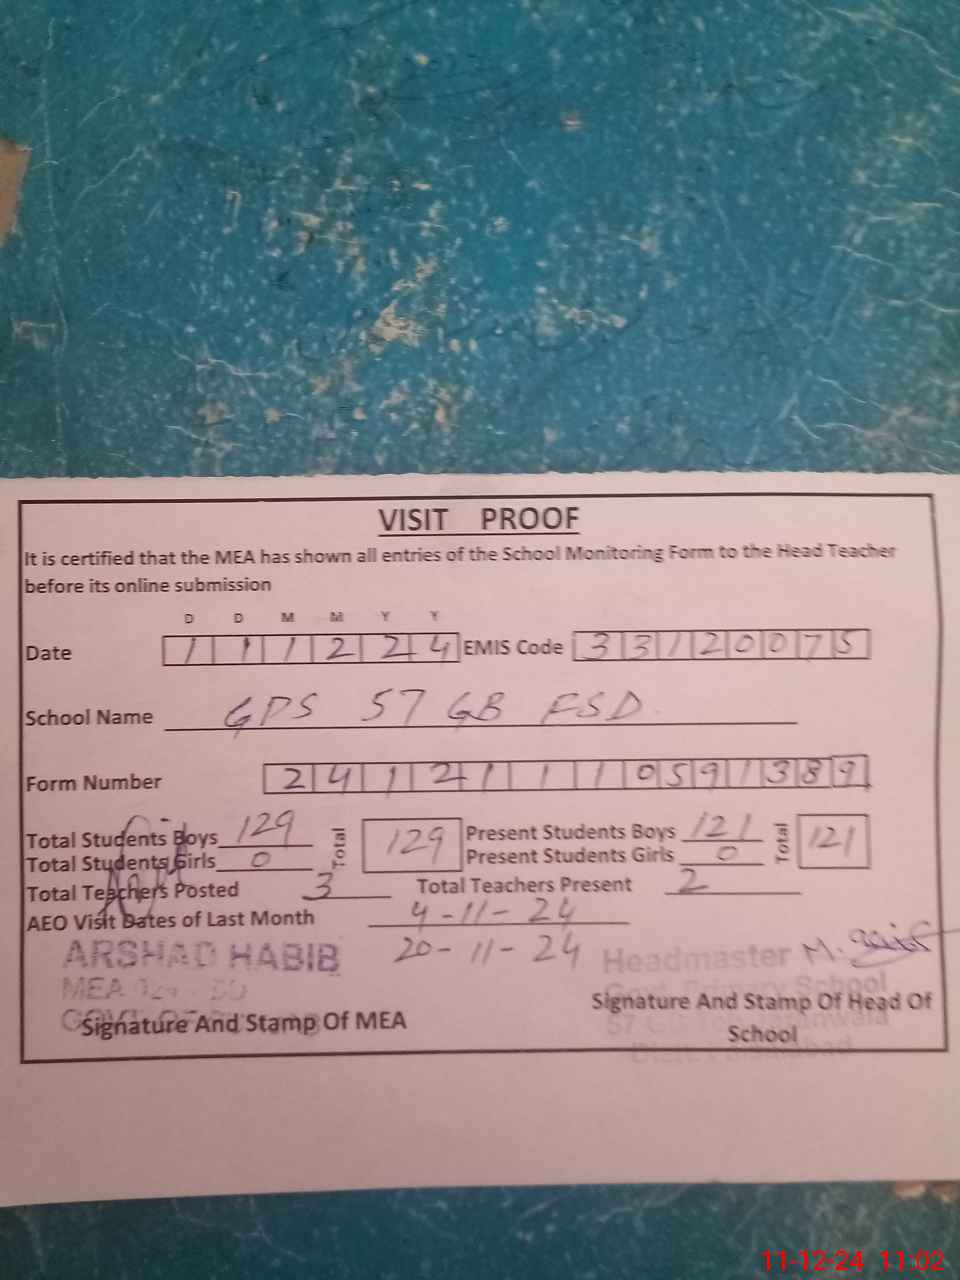 VISIT PROOF
It is certified that the MEA has shown all entries of the School Monitoring Form to the Head Teacher
before its online submission
D D M M Y Y
Date 1 1 1 2 2 4 EMIS Code 3 3 1 2 0 0 7 5
School Name GPS 57 GB FSD
Form Number 2 4 1 2 1 1 1 0 5 9 1 3 8 9
Total Students Boys 129 Total 129 Present Students Boys 121 Total 121
Total Students Girls 0 Present Students Girls 0
Total Teachers Posted 3 Total Teachers Present 2
AEO Visit Dates of Last Month 4-11-24
20-11-24
ARSHAD HABIB
MEA
Headmaster M.
Govt. Primary School
Signature And Stamp Of MEA
Signature And Stamp Of Head Of
School
11-12-24 11:02